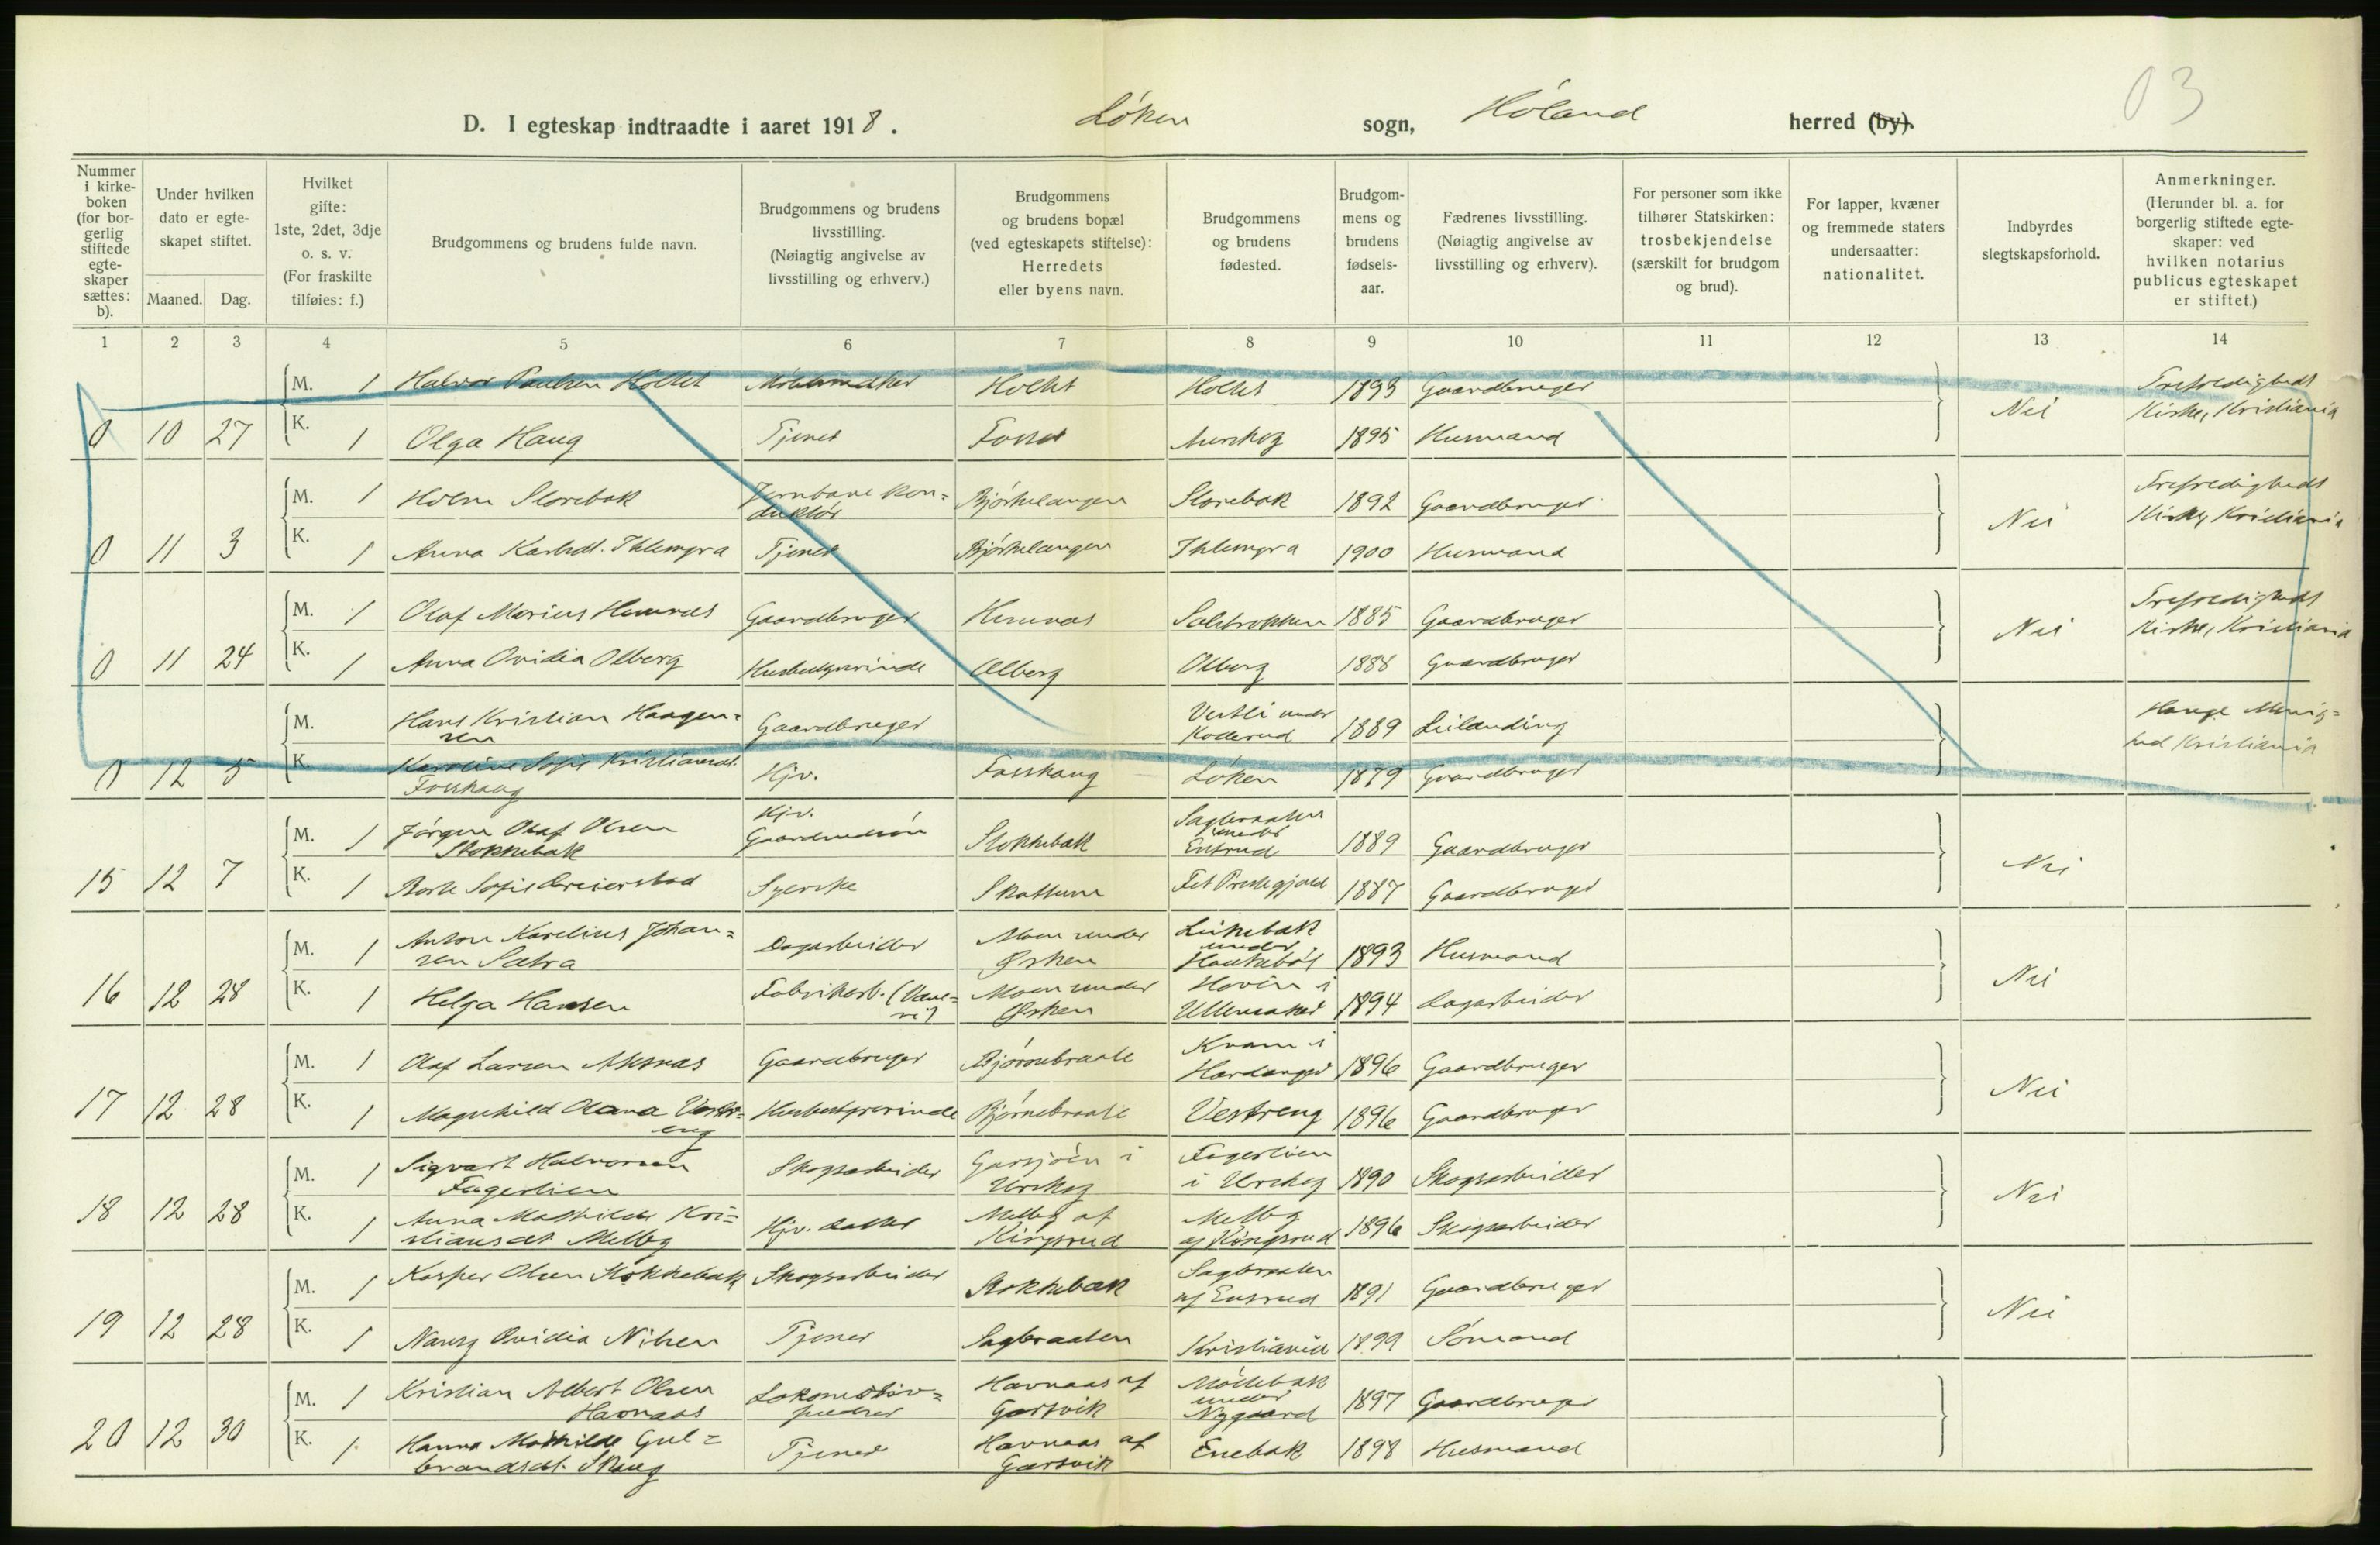 03
D. I egteskap indtraadte i aaret 1918. Løken sogn, Høland herred (by).
Nummer i kirkeboken (for borgerlig stiftede egteskaper sættes: b).
Under hvilken dato er egteskapet stiftet.
Maaned. Dag.
Hvilket gifte: 1ste, 2det, 3dje o. s. v. (For fraskilte tilføies: f.)
Brudgommens og brudens fulde navn.
Brudgommens og brudens livsstilling. (Nøiagtig angivelse av livsstilling og erhverv.)
Brudgommens og brudens bopæl (ved egteskapets stiftelse): Herredets eller byens navn.
Brudgommens og brudens fødested.
Brudgommens og brudens fødselsaar.
Fædrenes livsstilling. (Nøiagtig angivelse av livsstilling og erhverv).
For personer som ikke tilhører Statskirken: trosbekjendelse (særskilt for brudgom og brud).
For lapper, kvæner og fremmede staters undersaatter: nationalitet.
Indbyrdes slegtskapsforhold.
Anmerkninger. (Herunder bl. a. for borgerlig stiftede egteskaper: ved hvilken notarius publicus egteskapet er stiftet.)
1 2 3 4 5 6 7 8 9 10 11 12 13 14
M. 1 Halvor Paulsen Holtet Møbelsnedker Holtet Holtet 1893 Gaardbruger Trefoldigheds
0 10 27 K. 1 Olga Haug Tjener Fosser Aurskog 1895 Husmand Nei Kirke, Kristiania
M. 1 Holm Storebak Jernbane konduktør Bjørkelangen Storebak 1892 Gaardbruger Trefoldigheds
0 11 3 K. 1 Anna Karlsdt. Ihlemyra Tjener Bjørkelangen Ihlemyra 1900 Husmand Nei Kirke, Kristiania
M. 1 Olaf Marius Hemnæs Gaardbruger Hemnæs 1885 Gaardbruger Trefoldigheds
0 11 24 K. 1 Anna Ovidia Olberg Husbestyrerinde Olberg Olberg 1888 Gaardbruger Nei Kirke, Kristiania
M. Hans Kristian Haagensen Gaardbruger Vestli under Kollerud 1889 Leilænding Hauge Menighed Kristiania
0 12 5 K. Karoline Sofie Kristiansdt. Fosshaug Hjv. Fosshaug Løken 1879 Gaardbruger
M. 1 Jørgen Olaf Olsen Stokkebæk Hjv. Gaardmandssøn Stokkebæk Sagbraaten under Ensrud 1889 Gaardbruger
15 12 7 K. 1 Sofie Dreierstad Syerske Skattum Fet Prestegjæld 1887 Gaardbruger Nei
M. 1 Anton Karelius Johansen Sætra Dagarbeider Moen under Ørsken under 1893 Husmand
16 12 28 K. 1 Helga Hansen Fabrikarb. (Væveri) Moen under Ørsken Hovin i Ullensaker 1894 Dagarbeider Nei
M. 1 Olaf Larsen Aksnæs Gaardbruger Bjørnebraate Kvam i Hardanger 1896 Gaardbruger
17 12 28 K. 1 Magnhild Olava Vestreng Husbestyrerinde Bjørnebraate Vestreng 1896 Gaardbruger Nei
M. 1 Sigvart Halvorsen Fagerlien Skogsarbeider Garsjøen i Urskog Fagerlien i Urskog 1890 Skogsarbeider
18 12 28 K. 1 Anna Mathilde Kristiansdt. Melby Hjv. datter Melby af Kingsrud Melby af Kingsrud 1896 Skogsarbeider Nei
M. 1 Kasper Olsen Stokkebæk Skogsarbeider Stokkebæk Sagbraaten af Ensrud 1891 Gaardbruger
19 12 28 K. 1 Nancy Ovidia Nilsen Tjener Sagbraaten Kristiania 1899 Sømand Nei
M. 1 Kristian Albert Olsen Havnaas Lokomotivpudser Havnaas af Garsvik Møllebæk under Nygaard 1897 Gaardbruger
20 12 30 K. 1 Hanna Mathilde Gulbrandsdt. Skaug Tjener Havnaas af Garsvik Enebak 1898 Husmand